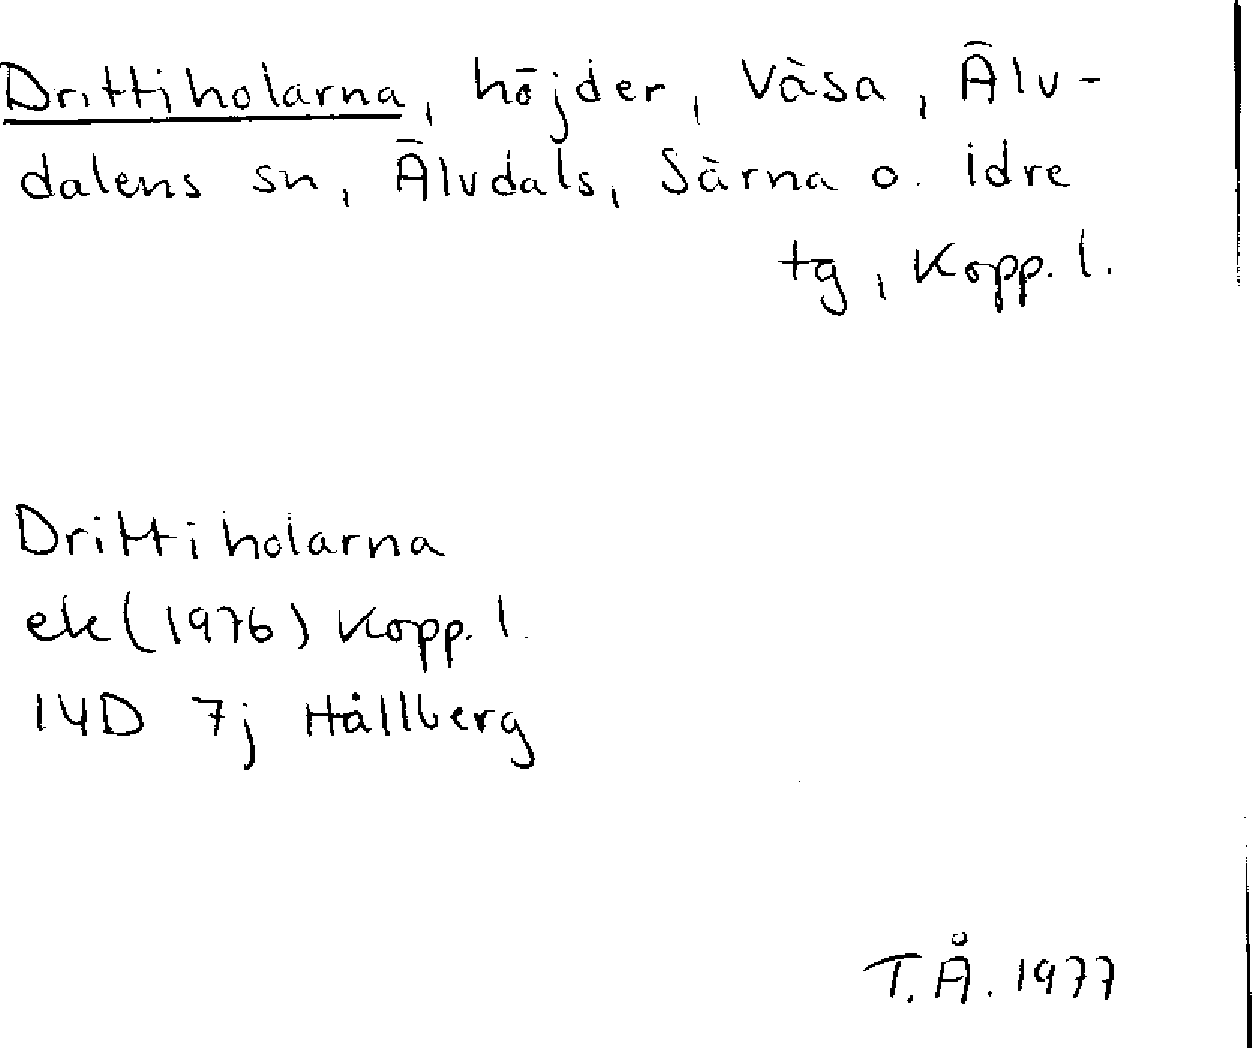 Drittiholarna, höjder, Våsa, Älv-
dalens sn, Älvdals, Särna o. Idre
tg, Kopp. l.
Drittiholarna
ek (1976) Kopp. l.
14D 7j Hållberg
T.Å. 1977